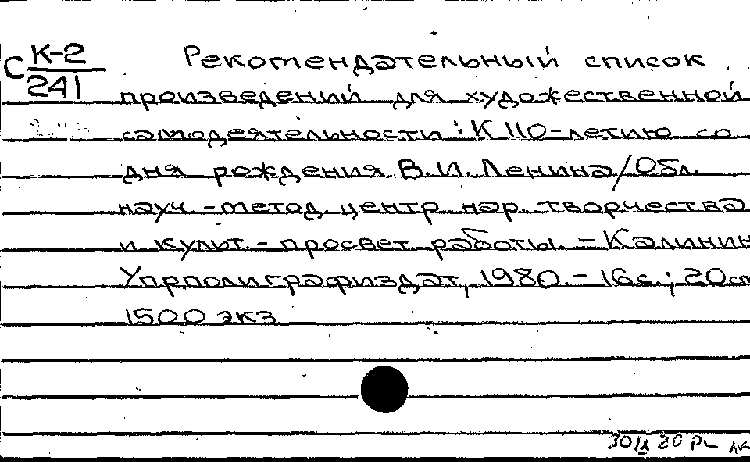 С К-2 Рекомендательный список
241 произведений для художественной
самодеятельности: К 110-летию со
дня рождения В.И. Ленина/Обл.
науч.-метод. центр нар. творчества
и культ.-просвет. работы. - Калинин
Упрполиграфиздат, 1980. - 16 с.; 20 см
1500 экз